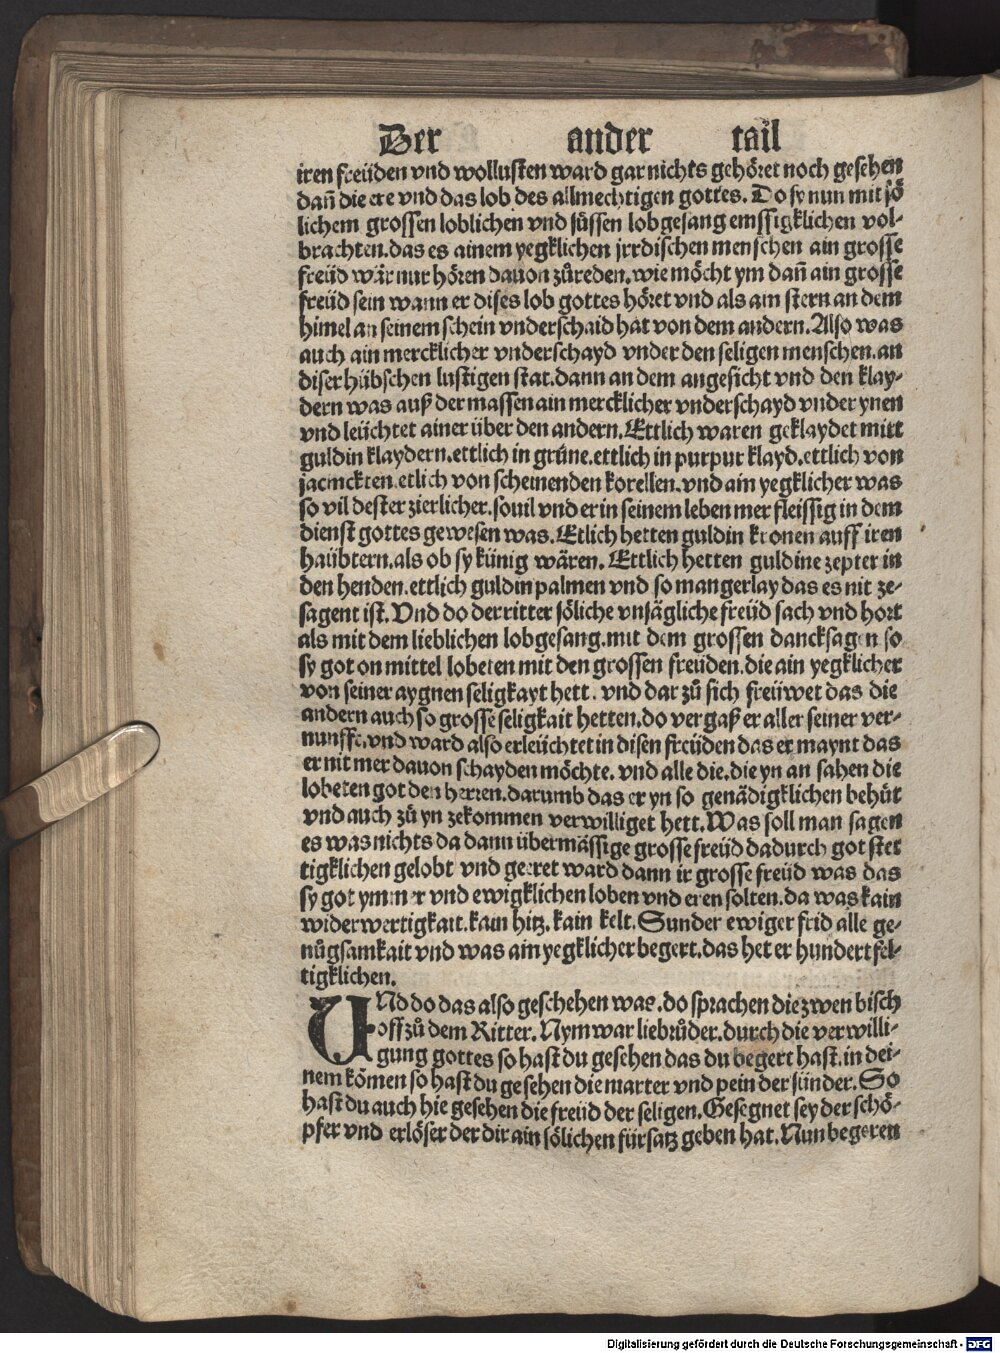 Der ander tail
iren freüden vnd wollusten ward gar nichts gehöret noch gesehen
dañ die ere vnd das lob des allmechtigen gottes. Do sy nun mit sö
lichem grossen loblichen vnd süssen lobgesang emssigklichen vol-
brachten. das es ainem yegklichen jrrdischen menschen ain grosse
freüd wär nur hören dauon zůreden. wie möcht ym dañ ain grosse
freüd sein wann er dises lob gottes höret vnd als ain stern an dem
himel an seinem schein vnderschaid hat von dem andern. Also was
auch ain mercklicher vnderschayd vnder den seligen menschen. an
diser hübschen lustigen stat. dann an dem angesicht vnd den klay-
dern was auß der massen ain mercklicher vnderschayd vnder ynen
vnd leüchtet ainer über den andern. Ettlich waren geklaydet mitt
guldin klaydern. ettlich in grüne. ettlich in purpur klayd. ettlich von
jacinckten. etlich von scheinenden korellen. vnd ain yegklicher was
so vil dester zierlicher. souil vnd er in seinem leben mer fleissig in dem
dienst gottes gewesen was. Etlich hetten guldin kronen auff iren
haübtern. als ob sy künig wären. Ettlich hetten guldine zepter in
den henden. ettlich guldin palmen vnd so mangerlay das es nit ze-
sagent ist. Vnd do der ritter söliche vnsägliche freüd sach vnd hort
als mit dem lieblichen lobgesang. mit dem grossen dancksagen so
sy got on mittel lobeten mit den grossen freüden. die ain yegklicher
von seiner aygnen seligkayt hett. vnd dar zů sich freüwet das die
andern auch so grosse seligkait hetten. do vergaß er aller seiner ver-
nunfft. vnd ward also erleüchtet in disen freüden das er maynt das
er nit mer dauon schayden möchte. vnd alle die. die yn an sahen die
lobeten got den herren. darumb das er yn so genädigklichen behüt
vnd auch zů yn zekommen verwilliget hett. Was soll man sagen
es was nichts da dann übermässige grosse freüd dadurch got stet
tigklichen gelobt vnd geeret ward dann ir grosse freüd was das
sy got ymmer vnd ewigklichen loben vnd eren solten. da was kain
widerwertigkait. kain hitz. kain kelt. Sunder ewiger frid alle ge-
nůgsamkait vnd was ain yegklicher begert. das het er hundert fel-
tigklichen.
VNd do das also geschehen was. do sprachen die zwen bisch
off zů dem Ritter. Nym war lieb růder. durch die verwilli-
gung gottes so hast du gesehen das du begert hast. in dei-
nem kömen so hast du gesehen die marter vnd pein der sünder. So
hast du auch hie gesehen die freüd der seligen. Gesegnet sey der schö-
pfer vnd erlöser der dir ain sölichen fürsatz geben hat. Nun begeren
Digitalisierung gefördert durch die Deutsche Forschungsgemeinschaft - DFG